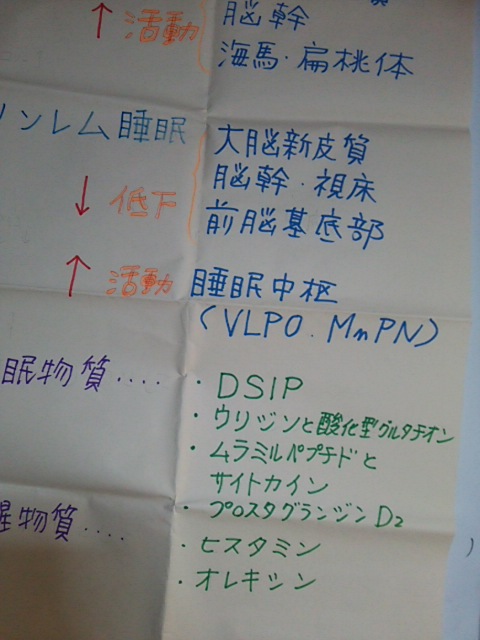 ↑ 活動 脳幹
海馬・扁桃体
ノンレム睡眠 大脳新皮質
脳幹・視床
↓ 低下
前脳基底部
↑ 活動 睡眠中枢
(VLPO.MnPN)
眠物質‥‥
・DSIP
・ウリジンと酸化型グルタチオン
・ムラミルペプチドと
サイトカイン
・プロスタグランジンD2
醒物質‥‥
・ヒスタミン
・オレキシン